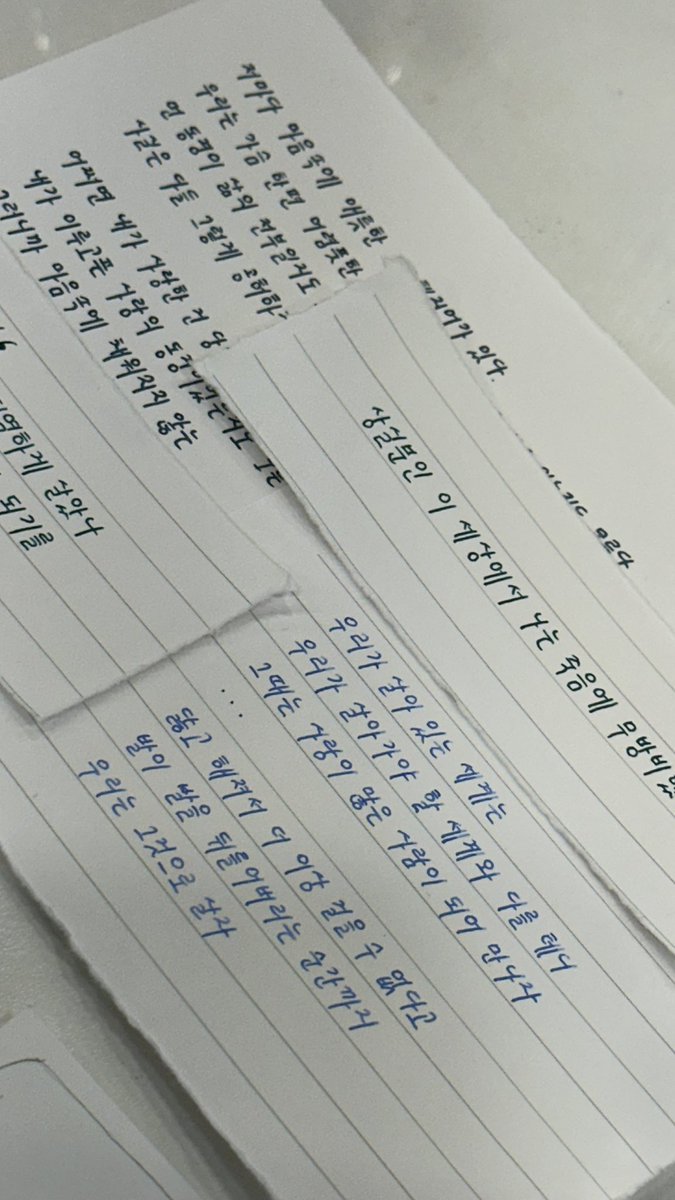 저마다 마음속에 애틋한
우리는 가슴 한편 어렴풋한
먼 동경이 삶의 전부일지도
사실은 다들 그렇게 공허하
어쩌면 내가 사랑한 건 당
내가 이루고픈 사랑의 동경이었는지도
그러니까 마음속에 채워지지 않은
있다.
상실투성인 이 세상에서 나는 죽음에 무방비
하게 살아나
들기도
우리가 살아 있는 세계는
우리가 살아가야 할 세계와 다를 테니
그때는 사랑이 많은 사람이 되어 만나자
...
닳고 해져서 더 이상 걸을 수 없다고
발이 발을 뒤틀어버리는 순간까지
우리는 그것으로 살자